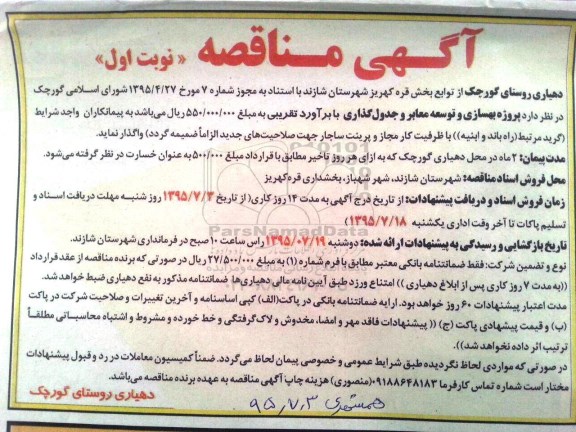 آگهی مناقصه « نوبت اول»
دهیاری روستای گورچک از توابع بخش قره کهریز شهرستان شازند با استناد به مجوز شماره ۷ مورخ ۱۳۹۵/۴/۲۷ شورای اسلامی گورچک
در نظر دارد پروژه بهسازی و توسعه معابر و جدول‌گذاری با برآورد تقریبی به مبلغ ۵۵۰/۰۰۰/۰۰۰ ریال می‌باشد به پیمانکاران واجد شرایط
(گرید مرتبط(راه باند و ابنیه)) با ظرفیت کار مجاز و پرینت ساجار جهت صلاحیت‌های جدید الزاماً ضمیمه گردد) واگذار نماید.
مدت پیمان: ۲ ماه در محل دهیاری گورچک که به ازای هر روز تأخیر مطابق با قرارداد مبلغ ۵۰۰/۰۰۰ به عنوان خسارت در نظر گرفته می‌شود.
محل فروش اسناد مناقصه: شهرستان شازند، شهر شهباز، بخشداری قره‌کهریز
زمان فروش اسناد و دریافت پیشنهادات: از تاریخ درج آگهی به مدت ۱۴ روز کاری( از تاریخ ۱۳۹۵/۷/۳ روز شنبه مهلت دریافت اسناد و
تسلیم پاکات تا آخر وقت اداری یکشنبه ۱۳۹۵/۷/۱۸)
تاریخ بازگشایی و رسیدگی به پیشنهادات ارائه شده: دوشنبه ۱۳۹۵/۰۷/۱۹ راس ساعت ۱۰ صبح در فرمانداری شهرستان شازند.
نوع و تضمین شرکت: فقط ضمانتنامه بانکی معتبر مطابق با فرم شماره (۱) به مبلغ ۲۷/۵۰۰/۰۰۰ ریال در صورتی که برنده مناقصه از عقد قرارداد
((به مدت ۷ روز کاری پس از ابلاغ دهیاری )) امتناع ورزد طبق آیین نامه مالی دهیاری‌ها ضمانتنامه مذکور به نفع دهیاری ضبط خواهد شد.
مدت اعتبار پیشنهادات ۶۰ روز خواهد بود. ارایه ضمانتنامه بانکی در پاکت(الف) کپی اساسنامه و آخرین تغییرات و صلاحیت شرکت در پاکت
(ب) و قیمت پیشهادی پاکت (ج) (( پیشنهادات فاقد مهر و امضا، مخدوش و لاک‌گرفتگی و خط خورده و مشروط و اشتباه محاسباتی مطلقاً
ترتیب اثر داده نخواهد شد)).
در صورتی که مواردی لحاظ نگردیده طبق شرایط عمومی و خصوصی پیمان لحاظ می‌گردد. ضمناً کمیسیون معاملات در رد و قبول پیشنهادات
مختار است شماره تماس کارفرما ۰۹۱۸۸۶۴۸۱۸۳(منصوری) هزینه چاپ آگهی مناقصه به عهده برنده مناقصه می‌باشد.
دهیاری روستای گورچک
همشهری ۹۵٫۷٫۳
ParsNamadData